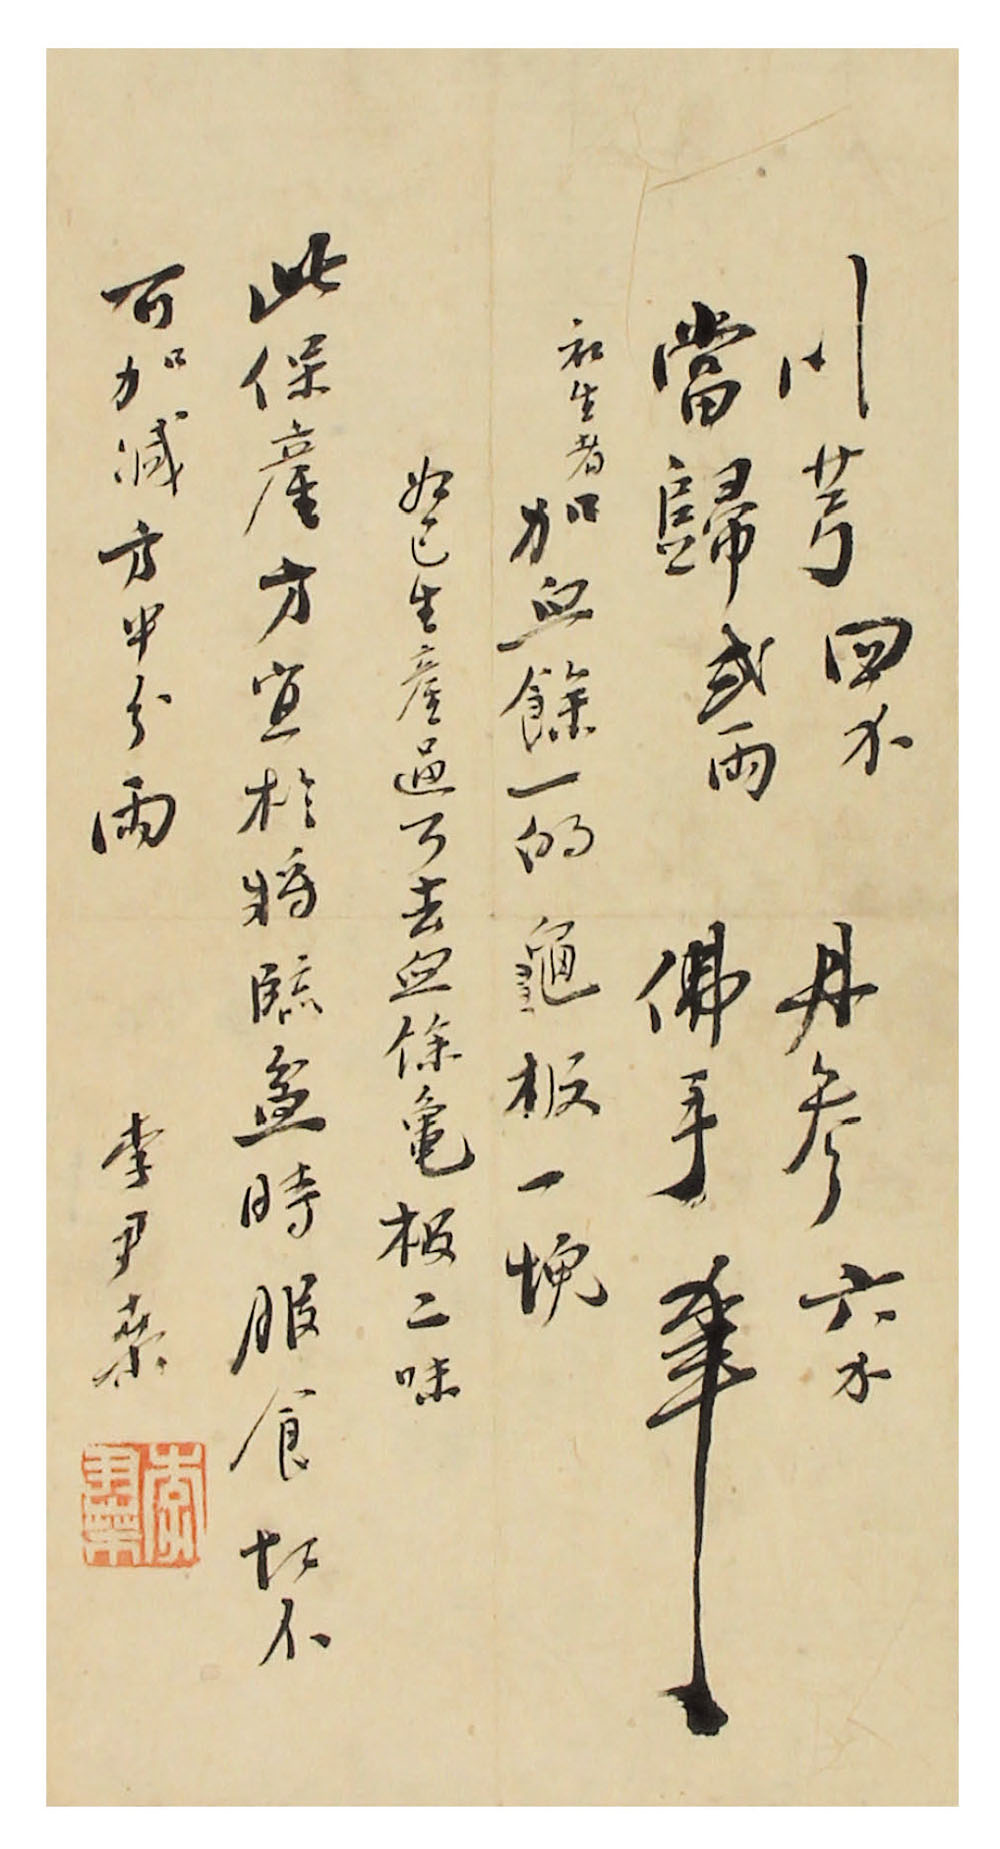 川芎四水 丹參六水
當歸弍兩 佛手半
初生者加血餘一的 龜板一塊
如已生產過可去血餘龜板二味
此保產方宜於將臨盆時服食切不
可加減方中分兩 李尹桑
李尹桑